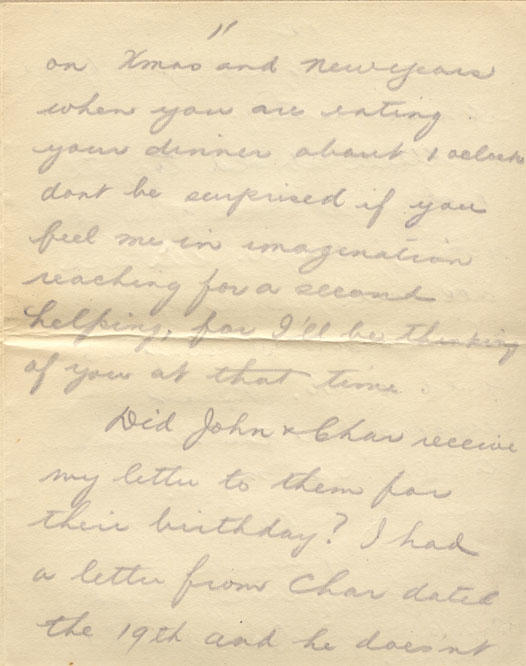 11
on Xmas and New Years
when you are eating
your dinner about 1 oclock
dont be surprised if you
feel me in imagination
reaching for a second
helping, for I'll be thinking
of you at that time.
Did John & Char receive
my letter to them for
their birthday? I had
a letter from Char dated
the 19th and he doesn't